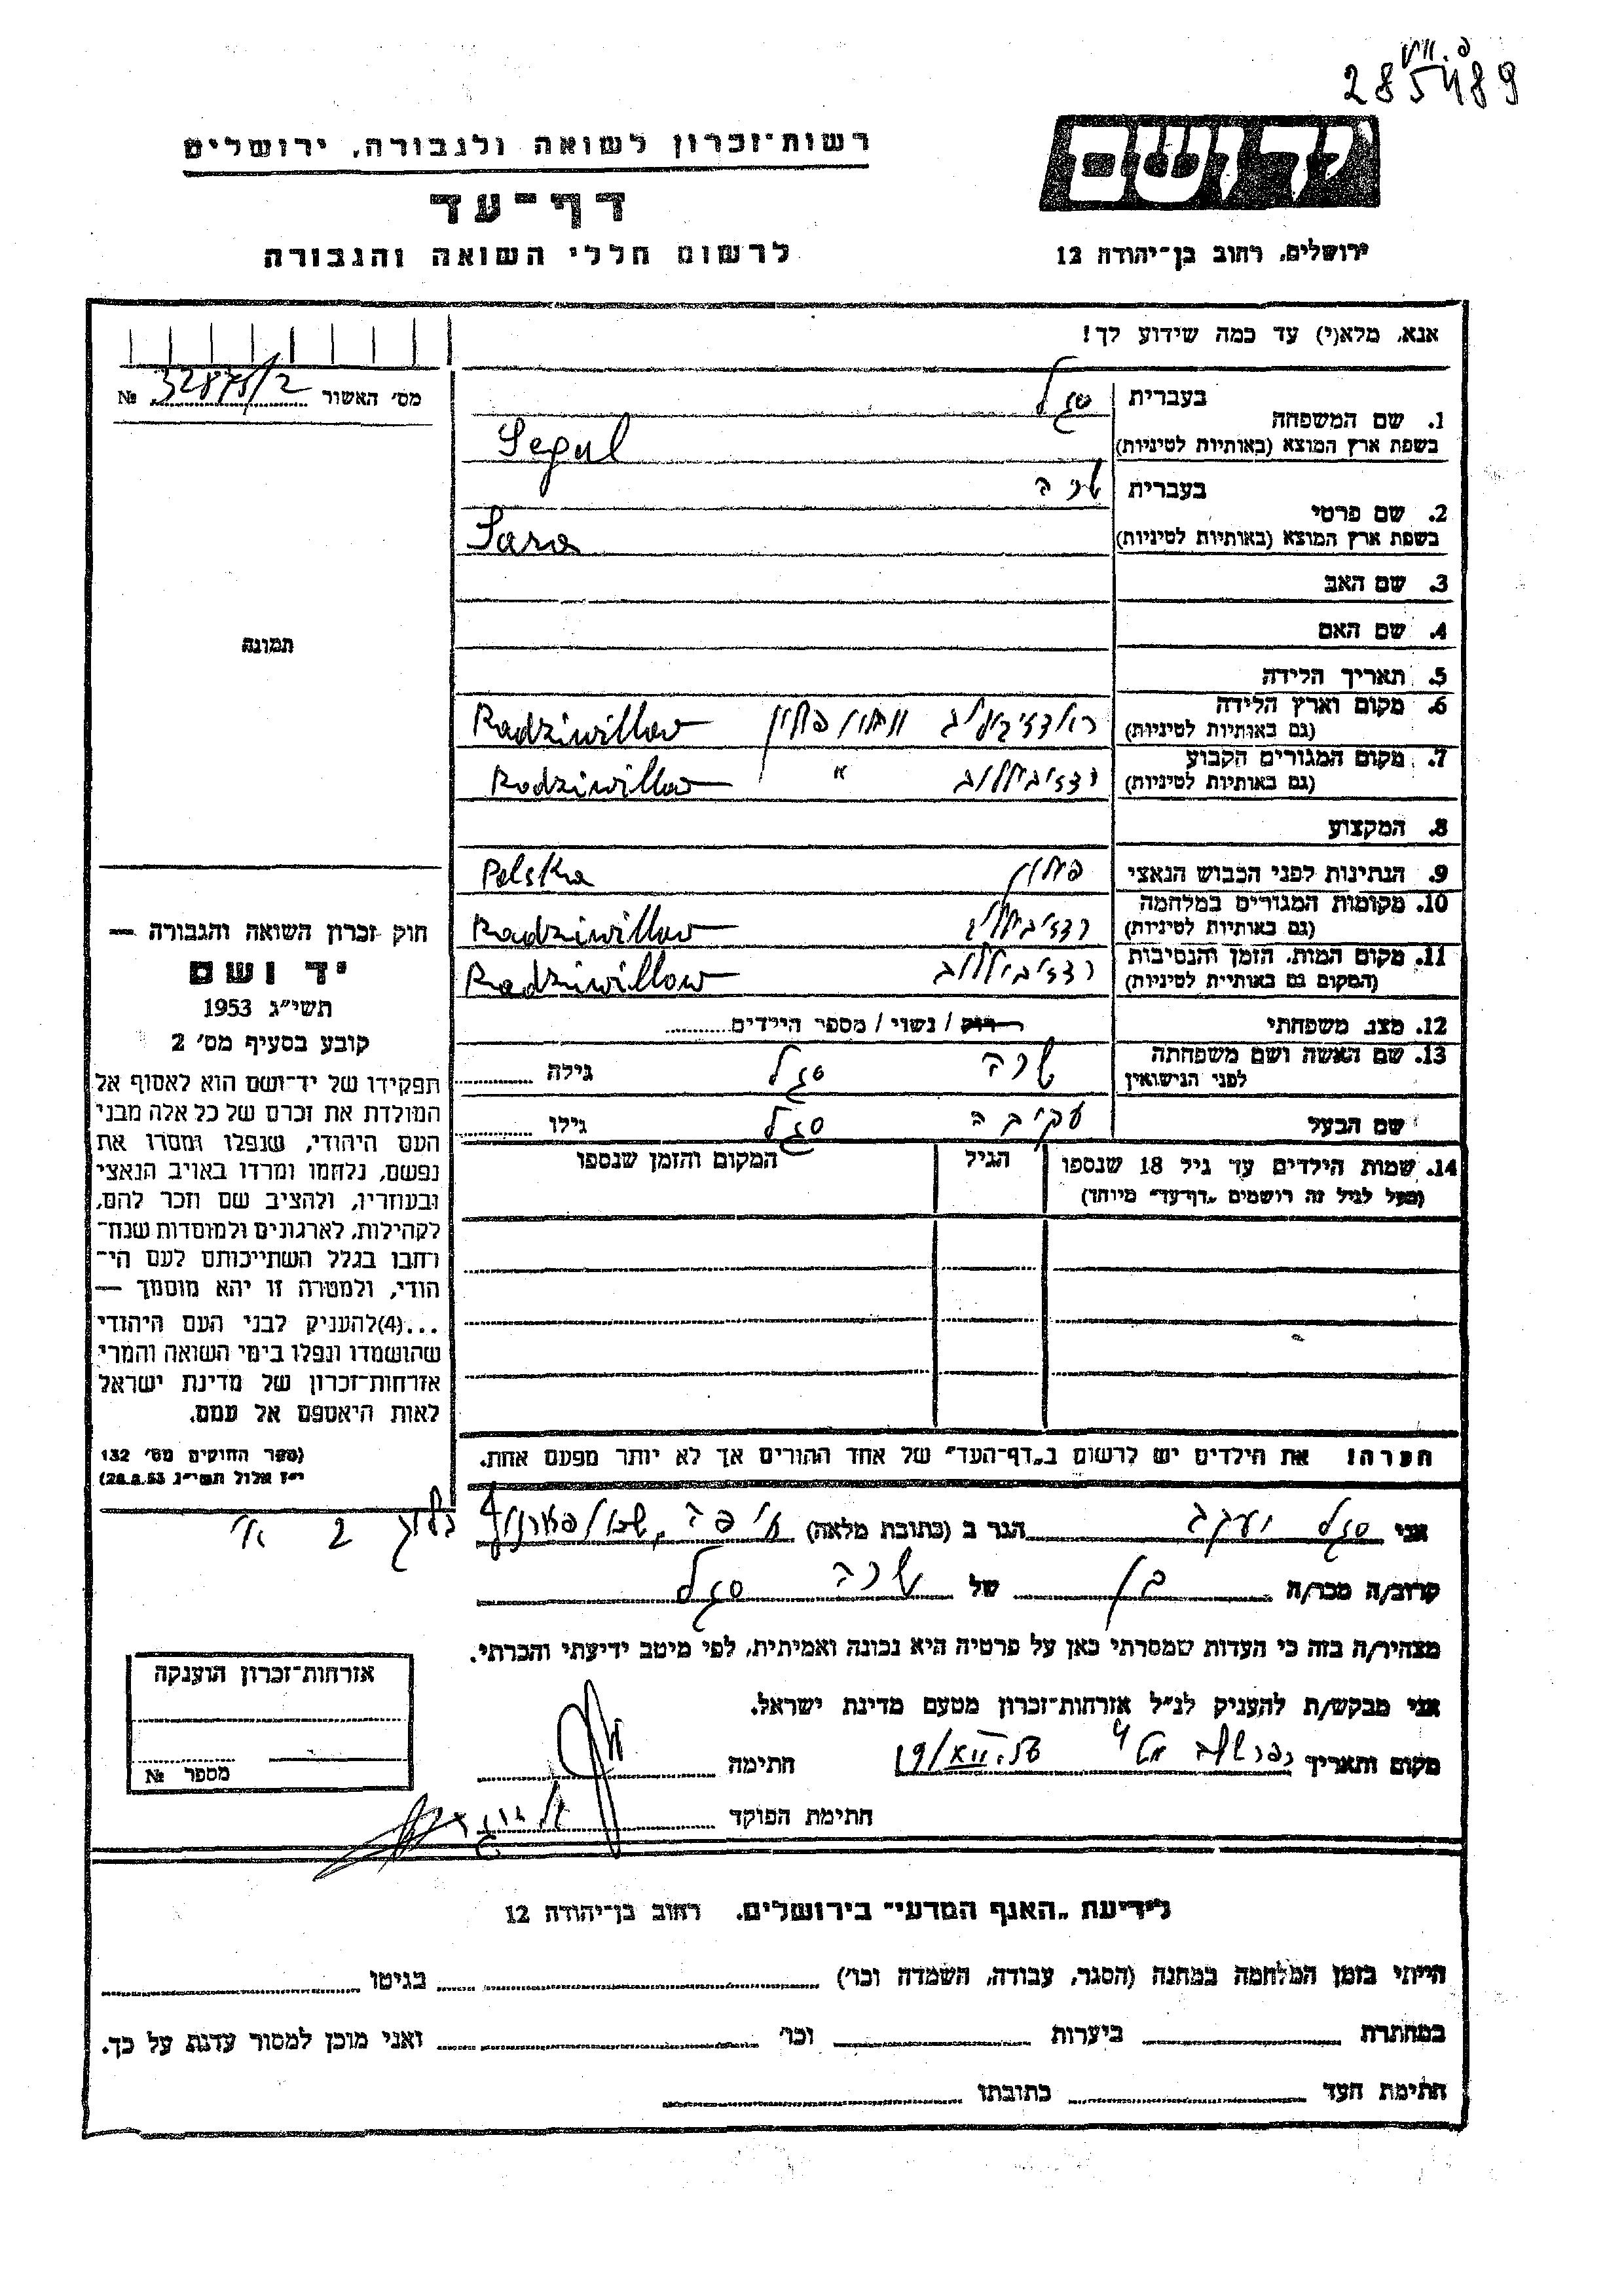 285489
יד ושם
ירושלים, רחוב בן־יהודה 12
רשות־זכרון לשואה ולגבורה, ירושלים
דף־עד
לרשום חללי השואה והגבורה
אנא, מלא(י) עד כמה שידוע לך!
מס׳ האשור 32875/2 №
1. שם המשפחה
בעברית סגל
בשפת ארץ המוצא (באותיות לטיניות) Segal
2. שם פרטי
בעברית שרה
בשפת ארץ המוצא (באותיות לטיניות) Sara
3. שם האב
4. שם האם
5. תאריך הלידה
6. מקום וארץ הלידה
(גם באותיות לטיניות) Radziwillow
7. מקום המגורים הקבוע
(גם באותיות לטיניות) רדזיבילוב " Radziwillow
8. המקצוע
9. הנתינות לפני הכבוש הנאצי פולין Polska
10. מקומות המגורים במלחמה
(גם באותיות לטיניות) רדזיבילוב Radziwillow
11. מקום המות, הזמן והנסיבות
(המקום גם באותיות לטיניות) רדזיבילוב Radziwillow
12. מצב משפחתי רוק / נשוי / מספר הילדים
13. שם האשה ושם משפחתה
לפני הנישואין שרה סגל גילה
שם הבעל עקיבה סגל גילו
14. שמות הילדים עד גיל 18 שנספו
(מעל לגיל זה רושמים „דף־עד" מיוחד)
הגיל
המקום והזמן שנספו
הערה! את הילדים יש לרשום ב„דף־העד" של אחד ההורים אך לא יותר מפעם אחת.
תמונה
חוק זכרון השואה והגבורה —
יד ושם
תשי״ג 1953
קובע בסעיף מס׳ 2
תפקידו של יד־ושם הוא לאסוף אל
המולדת את זכרם של כל אלה מבני
העם היהודי, שנפלו ומסרו את
נפשם, נלחמו ומרדו באויב הנאצי
ובעוזריו, ולהציב שם וזכר להם,
לקהילות, לארגונים ולמוסדות שנח־
רבו בגלל השתייכותם לעם הי־
הודי, ולמטרה זו יהא מוסמך —
...(4)להעניק לבני העם היהודי
שהושמדו ונפלו בימי השואה והמרי
אזרחות־זכרון של מדינת ישראל
לאות היאספם אל עמם.
(ספר החוקים מס׳ 132
י״ז אלול תשי״ג 28.8.53)
אני סגל יעקב הגר ב (כתובת מלאה)
קרוב/ה מכר/ה בן של שרה סגל
מצהיר/ה בזה כי העדות שמסרתי כאן על פרטיה היא נכונה ואמיתית, לפי מיטב ידיעתי והכרתי.
אני מבקש/ת להעניק לנ״ל אזרחות־זכרון מטעם מדינת ישראל.
מקום ותאריך חתימה
חתימת הפוקד
אזרחות־זכרון הוענקה
מספר №
לידיעת „האגף המדעי" בירושלים, רחוב בן־יהודה 12
הייתי בזמן המלחמה במחנה (הסגר, עבודה, השמדה וכו׳) בגיטו
במחתרת ביערות וכו׳ ואני מוכן למסור עדות על כך.
חתימת העד כתובתו